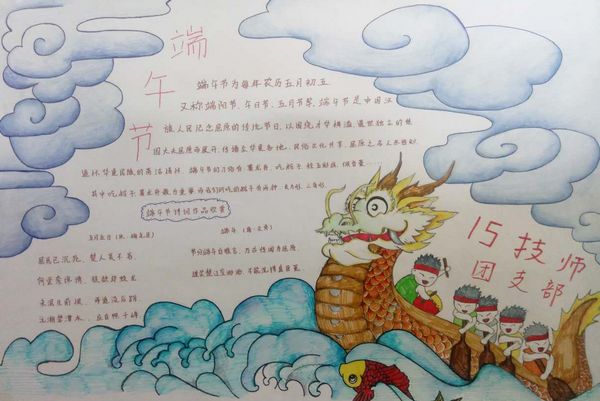 端午节
端午节为每年农历五月初五
又称端阳节、午日节、五月节等。端午节是中国汉
族人民纪念屈原的传统节日,以围绕才华横溢、遗世独立的楚
国大夫屈原而展开,传播至华夏各地,民俗文化共享,屈原之名人尽皆知,
追怀华夏民族的高洁情怀。端午节的习俗有赛龙舟、吃粽子
其中吃粽子
端午节诗词作品欣赏
五月五日
屈氏已沉死,楚人哀不容。
何尝奈谗谤,徒欲却蛟龙。
未泯生前恨,而追没后踪。
沅湘碧潭水,应自照千峰。
端午(唐·文秀)
节分端午自谁言,万古传闻为屈原。
堪笑楚江空渺渺,不能洗得直臣冤。
15技师
团支部